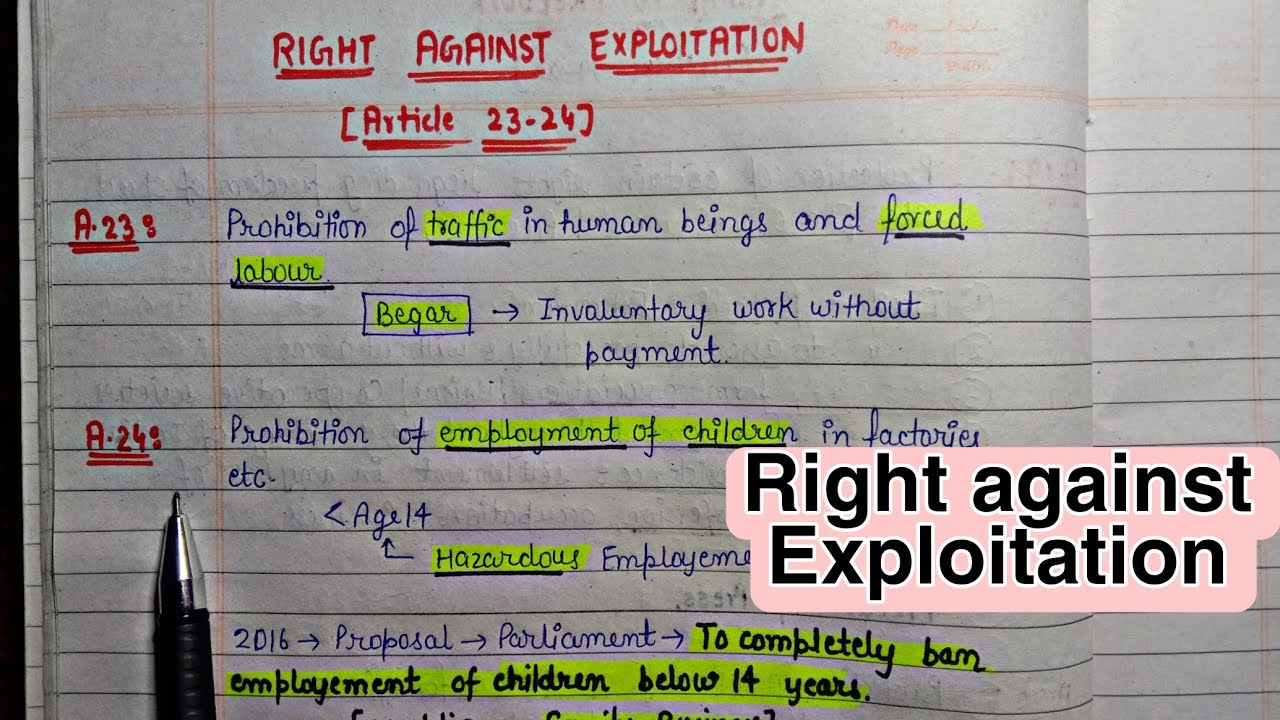 RIGHT AGAINST EXPLOITATION
[Article 23-24]
A.23: Prohibition of traffic in human beings and forced
labour.
Begar → Involuntary work without
payment.
A.24: Prohibition of employment of children in factories
etc.
< Age 14
Hazardous Employeme
2016 → Proposal → Parliament → To completely ban
employement of children below 14 years.
Family Business]
Right against
Exploitation